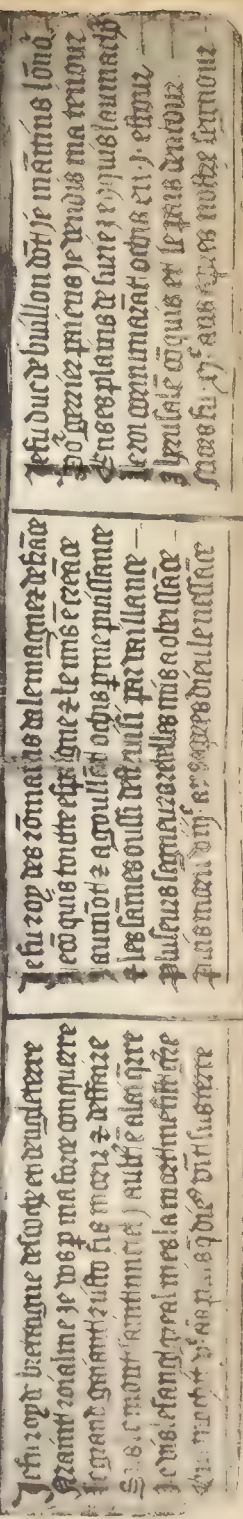 Je fu roy de brettaigne descoce et dengleterre
Maint roialme je vos p ma force conquerre
le grant gaiant rusto fis morir & deffaire
Sus le mont saint michiel j aultre alai qrre
Je vis le sang greal mes la mort me fist
vc ans puis q dieu vint sus terre
Je fu roy des romains dalemaigne & de frāce
Je cōquis toutte espaigne & le mis ē creāce
iaumōt & agoullāt ochis p me puissance
& les sannes oussi destruisi par vaillance
Pluseurs seigneurs rebelles mis a obeissāce
Puis moru viijc ans apres dieu le nessāce
Je fu duc de buillon dōt je maītins lōnō
Po gerrier paiens je vendis ma tenour
Ens es plains de surie je cōquis laumachō
Le roi cornumarāt ochis en j estour
Jherusalē cōquis et le pais dentour
Mors fu xjc ans apres nostre segnour